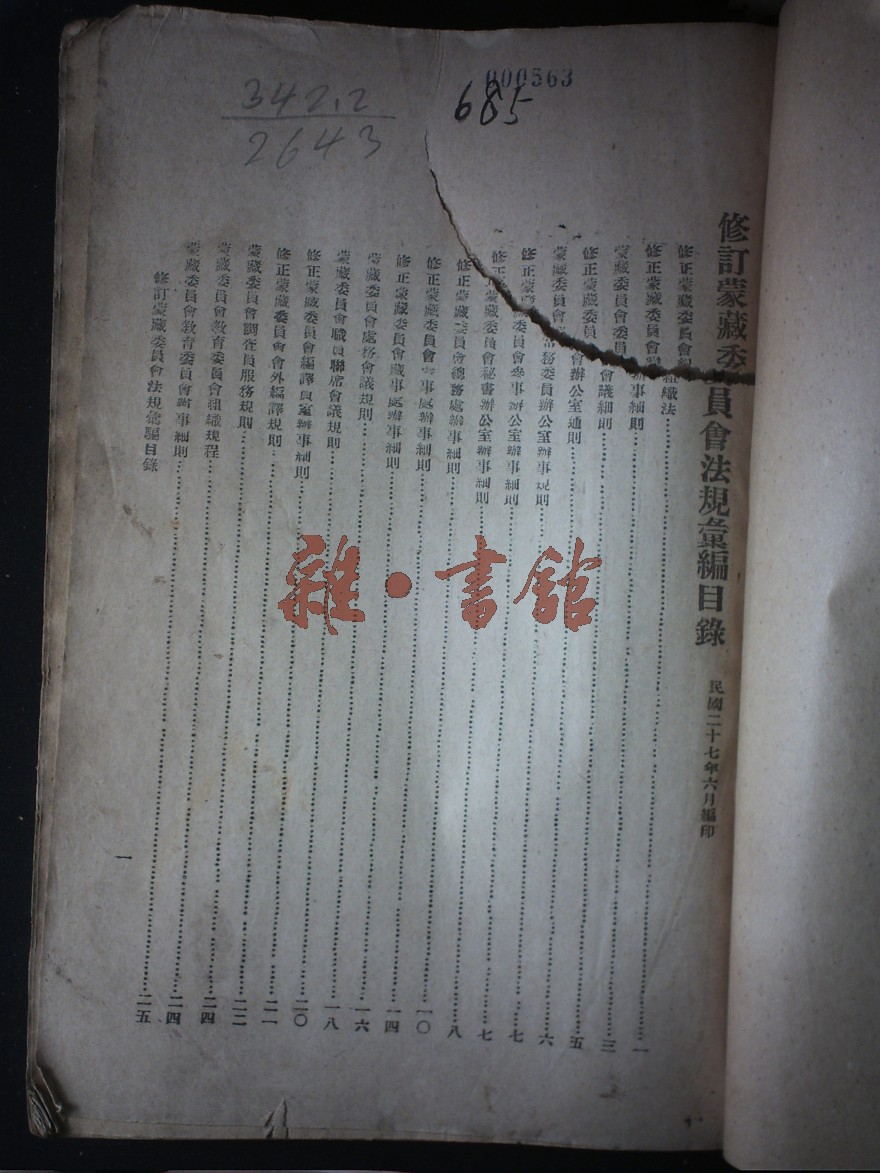 000563
685
342.2
2643
修訂蒙藏委員會法規彙編目錄 民國二十七年六月編印
修正蒙藏委員會組織法……一
修正蒙藏委員會辦事細則……三
蒙藏委員會委員會議細則……五
修正蒙藏委員會辦公室通則……六
蒙藏委員會常務委員辦公室辦事規則……七
修正蒙藏委員會參事辦公室辦事細則……七
修正蒙藏委員會秘書辦公室辦事細則……八
修正蒙藏委員會總務處辦事細則……一〇
修正蒙藏委員會蒙事處辦事細則……一四
修正蒙藏委員會藏事處辦事細則……一六
蒙藏委員會處務會議規則……一八
蒙藏委員會職員聯席會議規則……二〇
修正蒙藏委員會編譯員室辦事細則……二一
修正蒙藏委員會會外編譯規則……二二
蒙藏委員會調查員服務規則……二四
蒙藏委員會教育委員會組織規程……二四
蒙藏委員會教育委員會辦事細則……二五
修訂蒙藏委員會法規彙編目錄
一
雜·書館